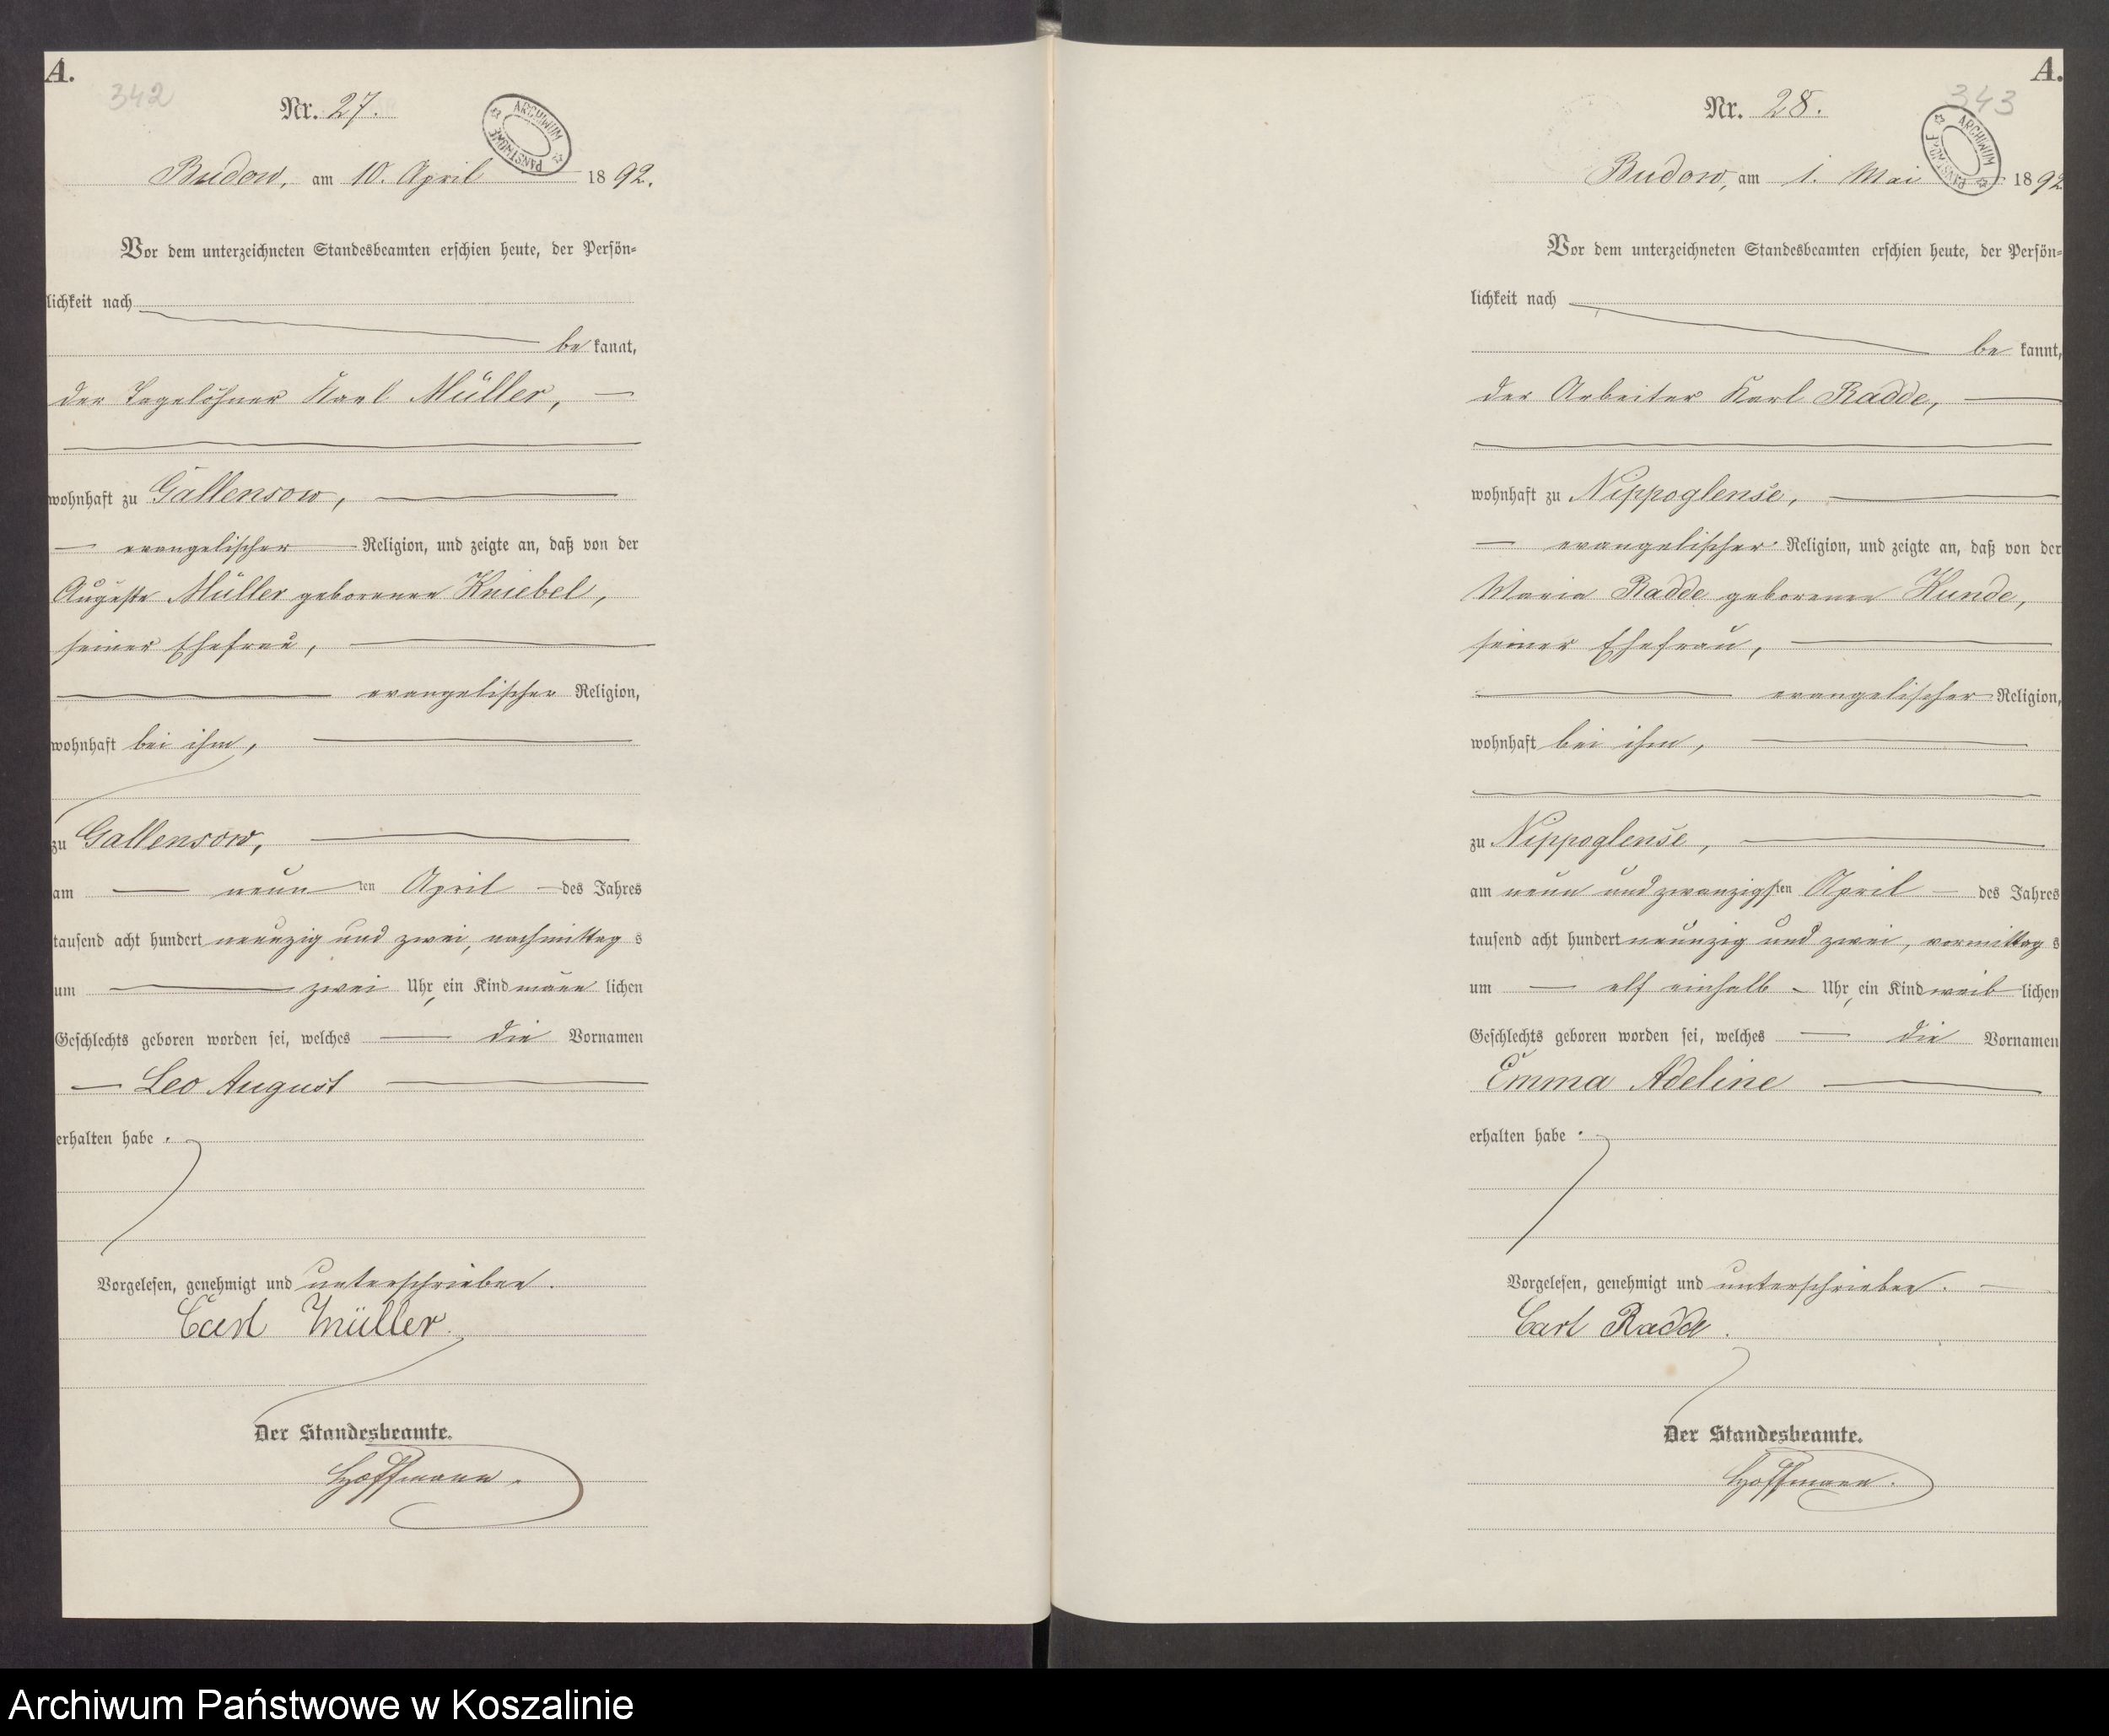 A.
342
Nr. 27.
ARCHIWUM PAŃSTWOWE
Budow, am 10. April 1892.
Vor dem unterzeichneten Standesbeamten erschien heute, der Persön-
lichkeit nach
be kannt,
der Tagelöhner Karl Müller,
wohnhaft zu Gallensow,
evangelischer Religion, und zeigte an, daß von der
Auguste Müller geborenen Kniebel,
seiner Ehefrau,
evangelischer Religion,
wohnhaft bei ihm,
zu Gallensow,
am neun ten April des Jahres
tausend acht hundert neunzig und zwei, nachmittag s
um zwei Uhr, ein Kind männ lichen
Geschlechts geboren worden sei, welches die Vornamen
Leo August
erhalten habe.
Vorgelesen, genehmigt und unterschrieben.
Carl Müller.
Der Standesbeamte.
Hoffmann.
A.
343
Nr. 28.
ARCHIWUM PAŃSTWOWE
Budow, am 1. Mai 1892
Vor dem unterzeichneten Standesbeamten erschien heute, der Persön-
lichkeit nach
be kannt,
der Arbeiter Karl Radde,
wohnhaft zu Nippoglense,
evangelischer Religion, und zeigte an, daß von der
Maria Radde geborenen Kunde,
seiner Ehefrau,
evangelischer Religion,
wohnhaft bei ihm,
zu Nippoglense,
am neun und zwanzigsten April des Jahres
tausend acht hundert neunzig und zwei, vormittag s
um elf einhalb Uhr, ein Kind weib lichen
Geschlechts geboren worden sei, welches die Vornamen
Emma Adeline
erhalten habe.
Vorgelesen, genehmigt und unterschrieben.
Carl Radde.
Der Standesbeamte.
Hoffmann.
Archiwum Państwowe w Koszalinie